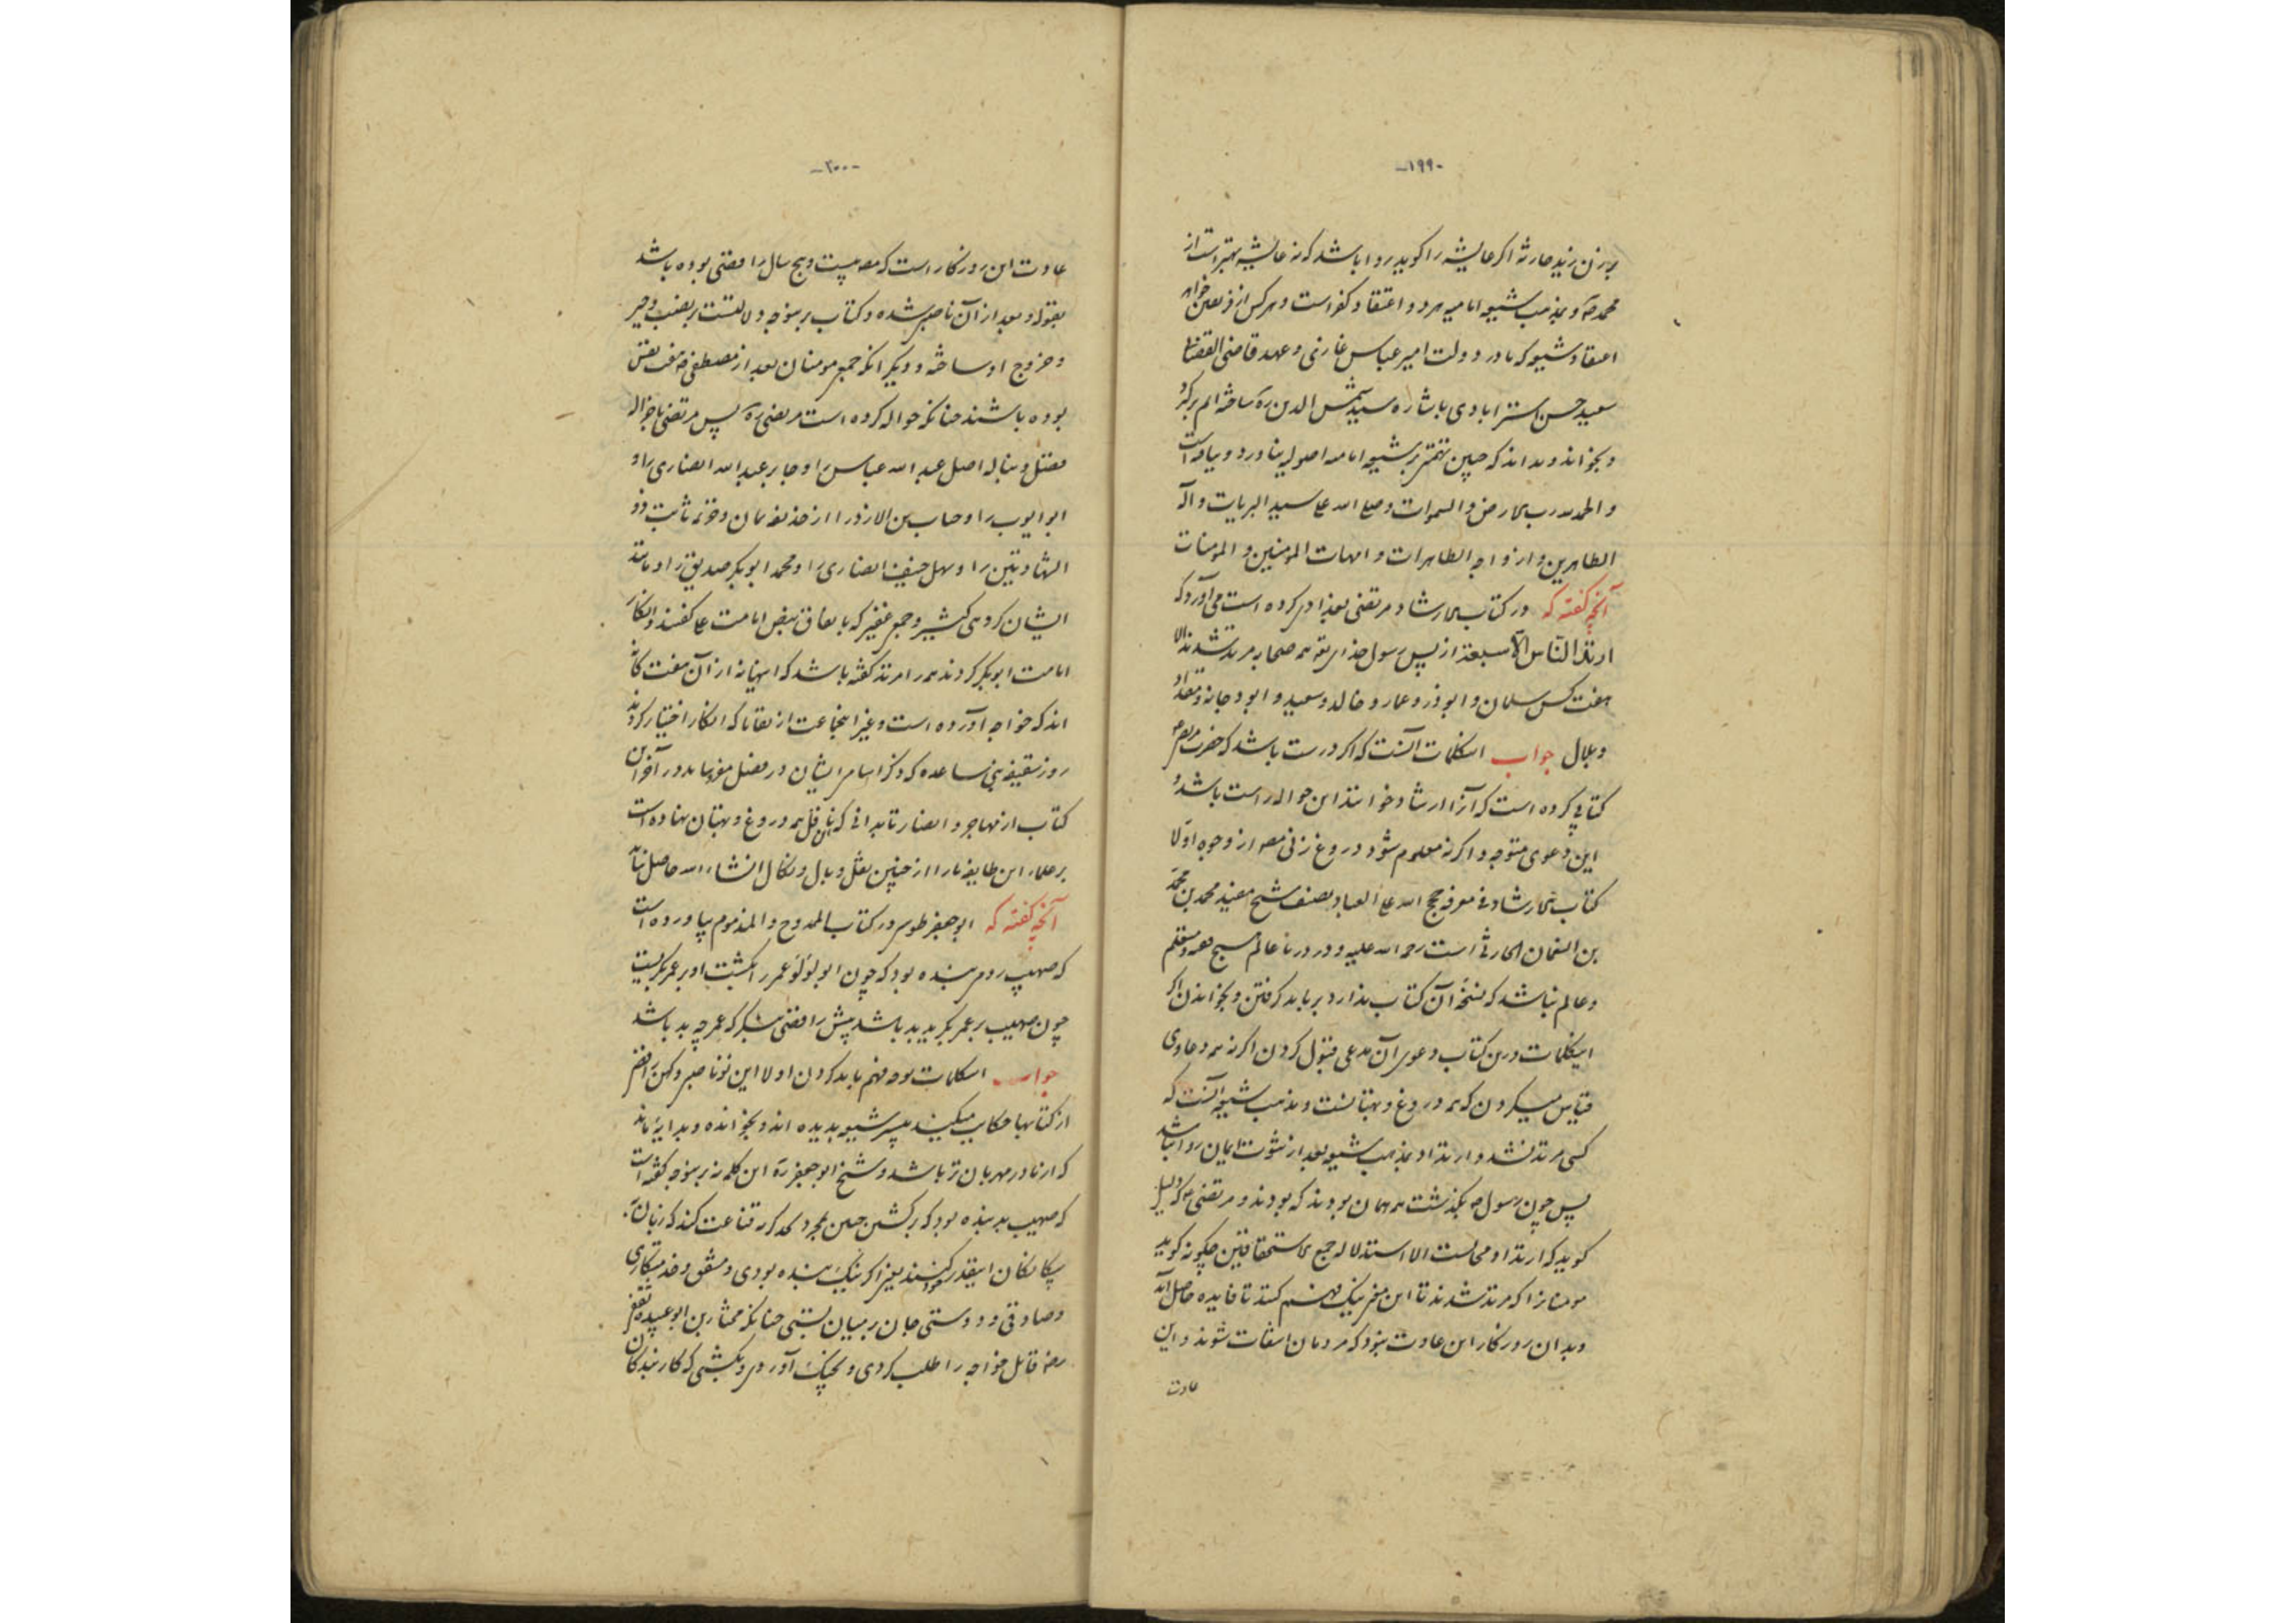 -۱۹۹-
بر زن زید حارثه اگر عایشه را گوید روا باشد که نه عایشه بهتر است از
محمد صه و بمذهب شیعه امامیه هر دو اعتقاد کفر است و هر کس از فریقین خواهد
اعتقاد شیعه که ما در دولت امیر عباس غازی و عهد قاضی القضاة
سعید حسن استرابادی باشاره سید شمس الدین ره ساخته ایم برگیرد
و بخواند و بداند که چنین تهمتی بر شیعه امامیه اصولیه بناورد و نیامده است
و الحمد لله رب الارض و السموات و صلی الله علی سید البریات و آله
الطاهرین و ازواجه الطاهرات و امهات المومنین و المومنات
آنچه گفته که در کتاب الارشاد مرتضی بغدادی کرده است می آورد که
ارتد الناس الا سبعة از پس رسول خدای همه صحابه مرتد شدند الا
هفت کس سلمان و ابوذر و عمار و خالد و سعید و ابو دجانه و مقداد
و بلال جواب اینکلمات آنست که اگر درست باشد که حضرت مرتضی
کتابی کرده است که آنرا ارشاد خوانند این حواله راست باشد و
این دعوی متوجه و اگر نه معلوم شود دروغ زنی مصنف از وجوه اولا
کتاب الارشاد فی معرفة حجج الله علی العباد تصنیف شیخ مفید محمد بن محمد
بن النعمان الحارثی است رحمة الله علیه و در دریا عالم هیچ متعلم
و عالم نباشد که نسخه آن کتاب ندارد بر باید گرفتن و بخواندن اگر
اینکلمات درین کتاب دعوی آن مدعی قبول کردن اگر نه همه دعاوی
قیاس میکردن که همه دروغ و بهتانست و مذهب شیعه آنست که
کسی مرتد نشد و ارتداد بمذهب شیعه بعد از ثبوت ایمان روا نباشد
پس چون رسول صه بگذشت همه همان بودند که بودند و مرتضی که دلیل
گوید که ارتداد محالست الا استدلاله جمع الاستحقاقین چگونه گوید
مومنانرا که مرتد شدند تا این معنی نیک فهم کنند تا فایده حاصل آید
و بدان روزگار این عادت نبود که مردمان التفات شوند و این
عادت
-۲۰۰-
عادت این روزگار است که مصنف بیست و پنج سال رافضی بوده باشد
بقوله و بعد از آن ناصبی شده و کتاب برینوجه دلالتست بر نصب و جبر
و خروج او ساخته و دیگر آنکه جمع مومنان بعد از مصطفی صه هفت نفس
بوده باشند چنانکه حواله کرده است مرتضی ره پس مرتضی با جزاله
فضل و نباله اصل عبد الله عباس را و جابر عبد الله انصاری را و
ابو ایوب را و خباب بن الارت را از حذیفه یمان و خزیمه ثابت ذو
الشهادتین را و سهل حنیف انصاری را و محمد ابو بکر صدیق را و مانند
ایشان گروهی کثیر و جمع غفیر که باتفاق بنص امامت علی گفتند و انکار
امامت ابو بکر کردند همه را مرتد گفته باشد که اینها نه از آن هفت کانه
اند که خواجه آورده است و غیر اینجماعت از نقبا که انکار اختیار کردند
روز سقیفه بنی ساعده که ذکر اسامی ایشان در فصل مفرد بیاید در آخر این
کتاب از مهاجر و انصار تا بدانی که این ناقل همه دروغ و بهتان نهاده است
بر علما، این طایفه تا او را از چنین نقل وبال و نکال انشاء الله حاصل آید
آنچه گفته که ابو جعفر طوسی در کتاب الممدوح و المذموم بیاورده است
که صهیب رومی بنده بود که چون ابو لؤلؤ عمر را بکشت او بر عمر بگریست
چون صهیب بر عمر بگرید بد باشد پیش رافضی بنگر که عمر چه بد باشد
جواب اینکلمات بوجه فهم باید کردن اولا این نو ناصبی و کهن رافضی
از کتابها حکایت میکند مگر شیعه بدیده اند و بخوانده و بدایه ماند
که از مادر مهربان تر باشد و شیخ ابو جعفر ره این کلمه نه برینوجه گفته است
که صهیب بد بنده بود که بر کشتن چنین بمجرد گریه قناعت کند که زنان و
بیگانگان اینقدر خود کنند یعنی اگر نیک بنده بودی و مشفق و خدمتکاری
و صادق و دوستی جان بر میان بستی چنانکه مختار بن ابو عبیده ثقفی
رضه قاتل خواجه را طلب کردی و بچنگ آوردی و بکشتی که کار بندگان